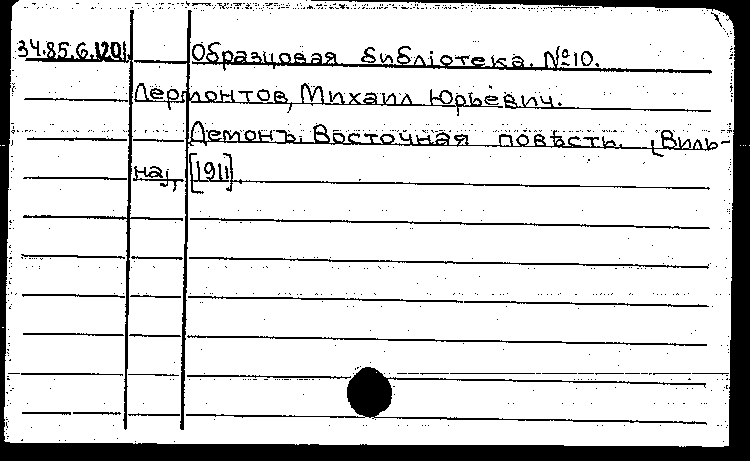 34.85.6.1201. Образцовая библіотека. №10.
Лермонтов, Михаил Юрьевич.
Демонъ. Восточная повѣсть. [Виль-
на], [1911].